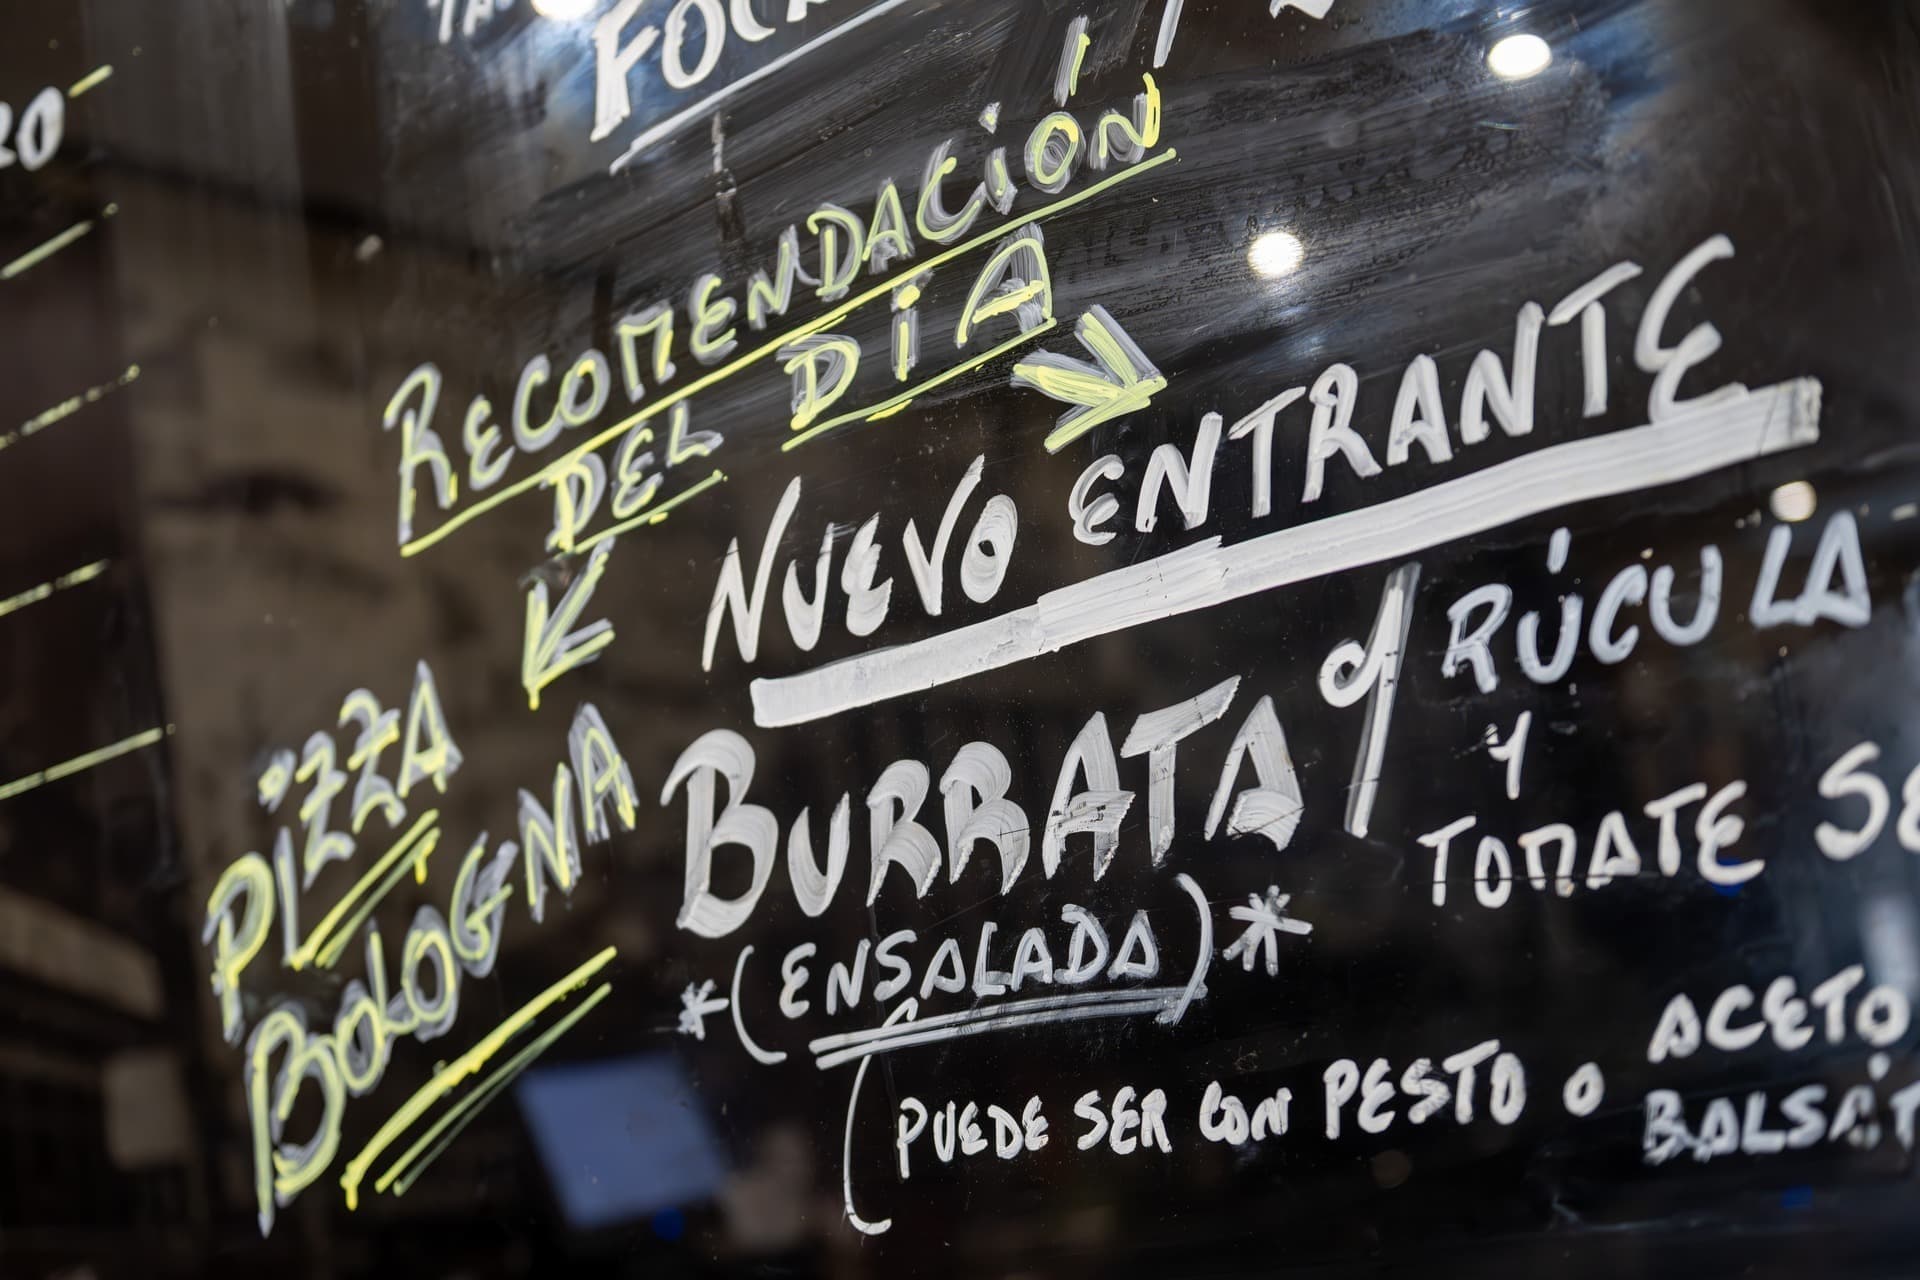 RECOMENDACIÓN
DEL DÍA
PIZZA
BOLOGNA
NUEVO ENTRANTE
BURRATA
RÚCULA
Y
TOMATE
*(ENSALADA)*
(PUEDE SER CON PESTO O ACETO